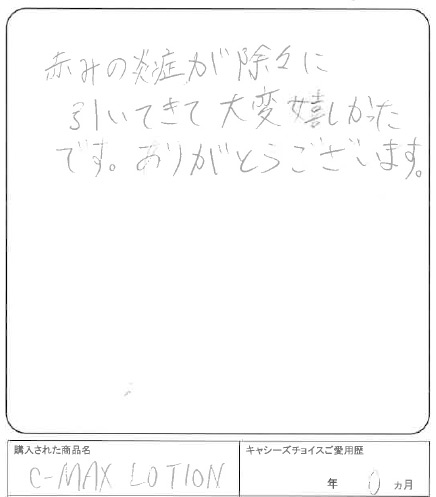 赤みの炎症が除々に
引いてきて大変嬉しかった
です。ありがとうございます。
購入された商品名
C-MAX LOTION
キャシーズチョイスご愛用歴
年 0 ヵ月